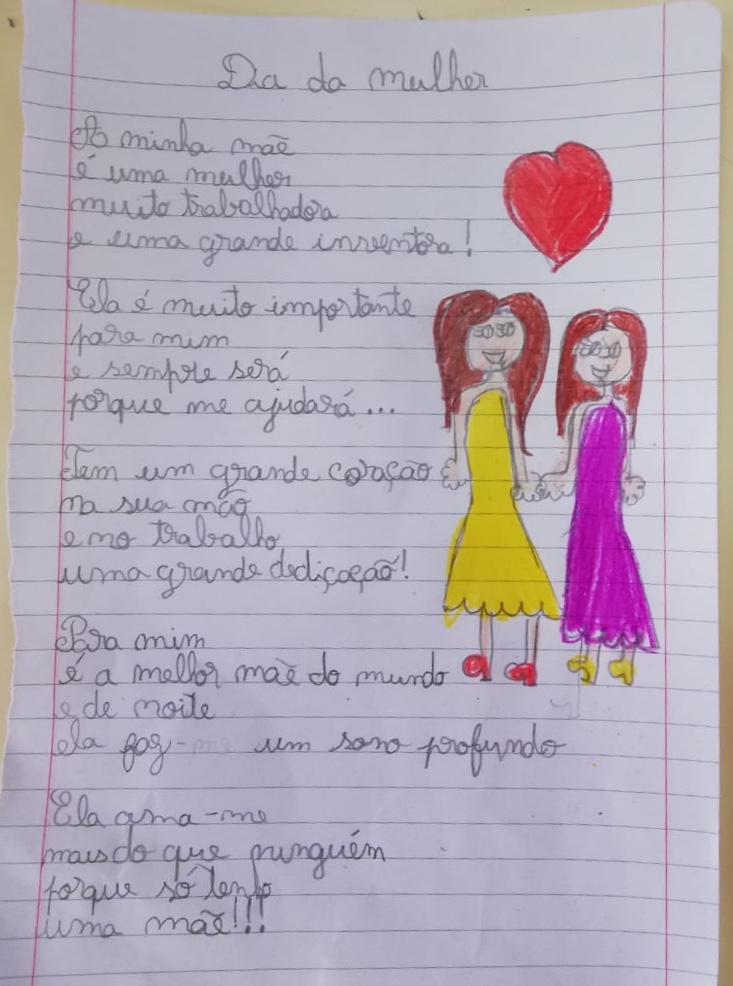 Dia da mulher
A minha mãe
é uma mulher
muito trabalhadora
e uma grande inventora!
Ela é muito importante
para mim
e sempre será
porque me ajudará...
Tem um grande coração
na sua mão
e no trabalho
uma grande dedicação!
Para mim
é a melhor mãe do mundo
e de noite
ela faz-me um sono profundo
Ela ama-me
mais do que ninguém
porque só tenho
uma mãe!!!